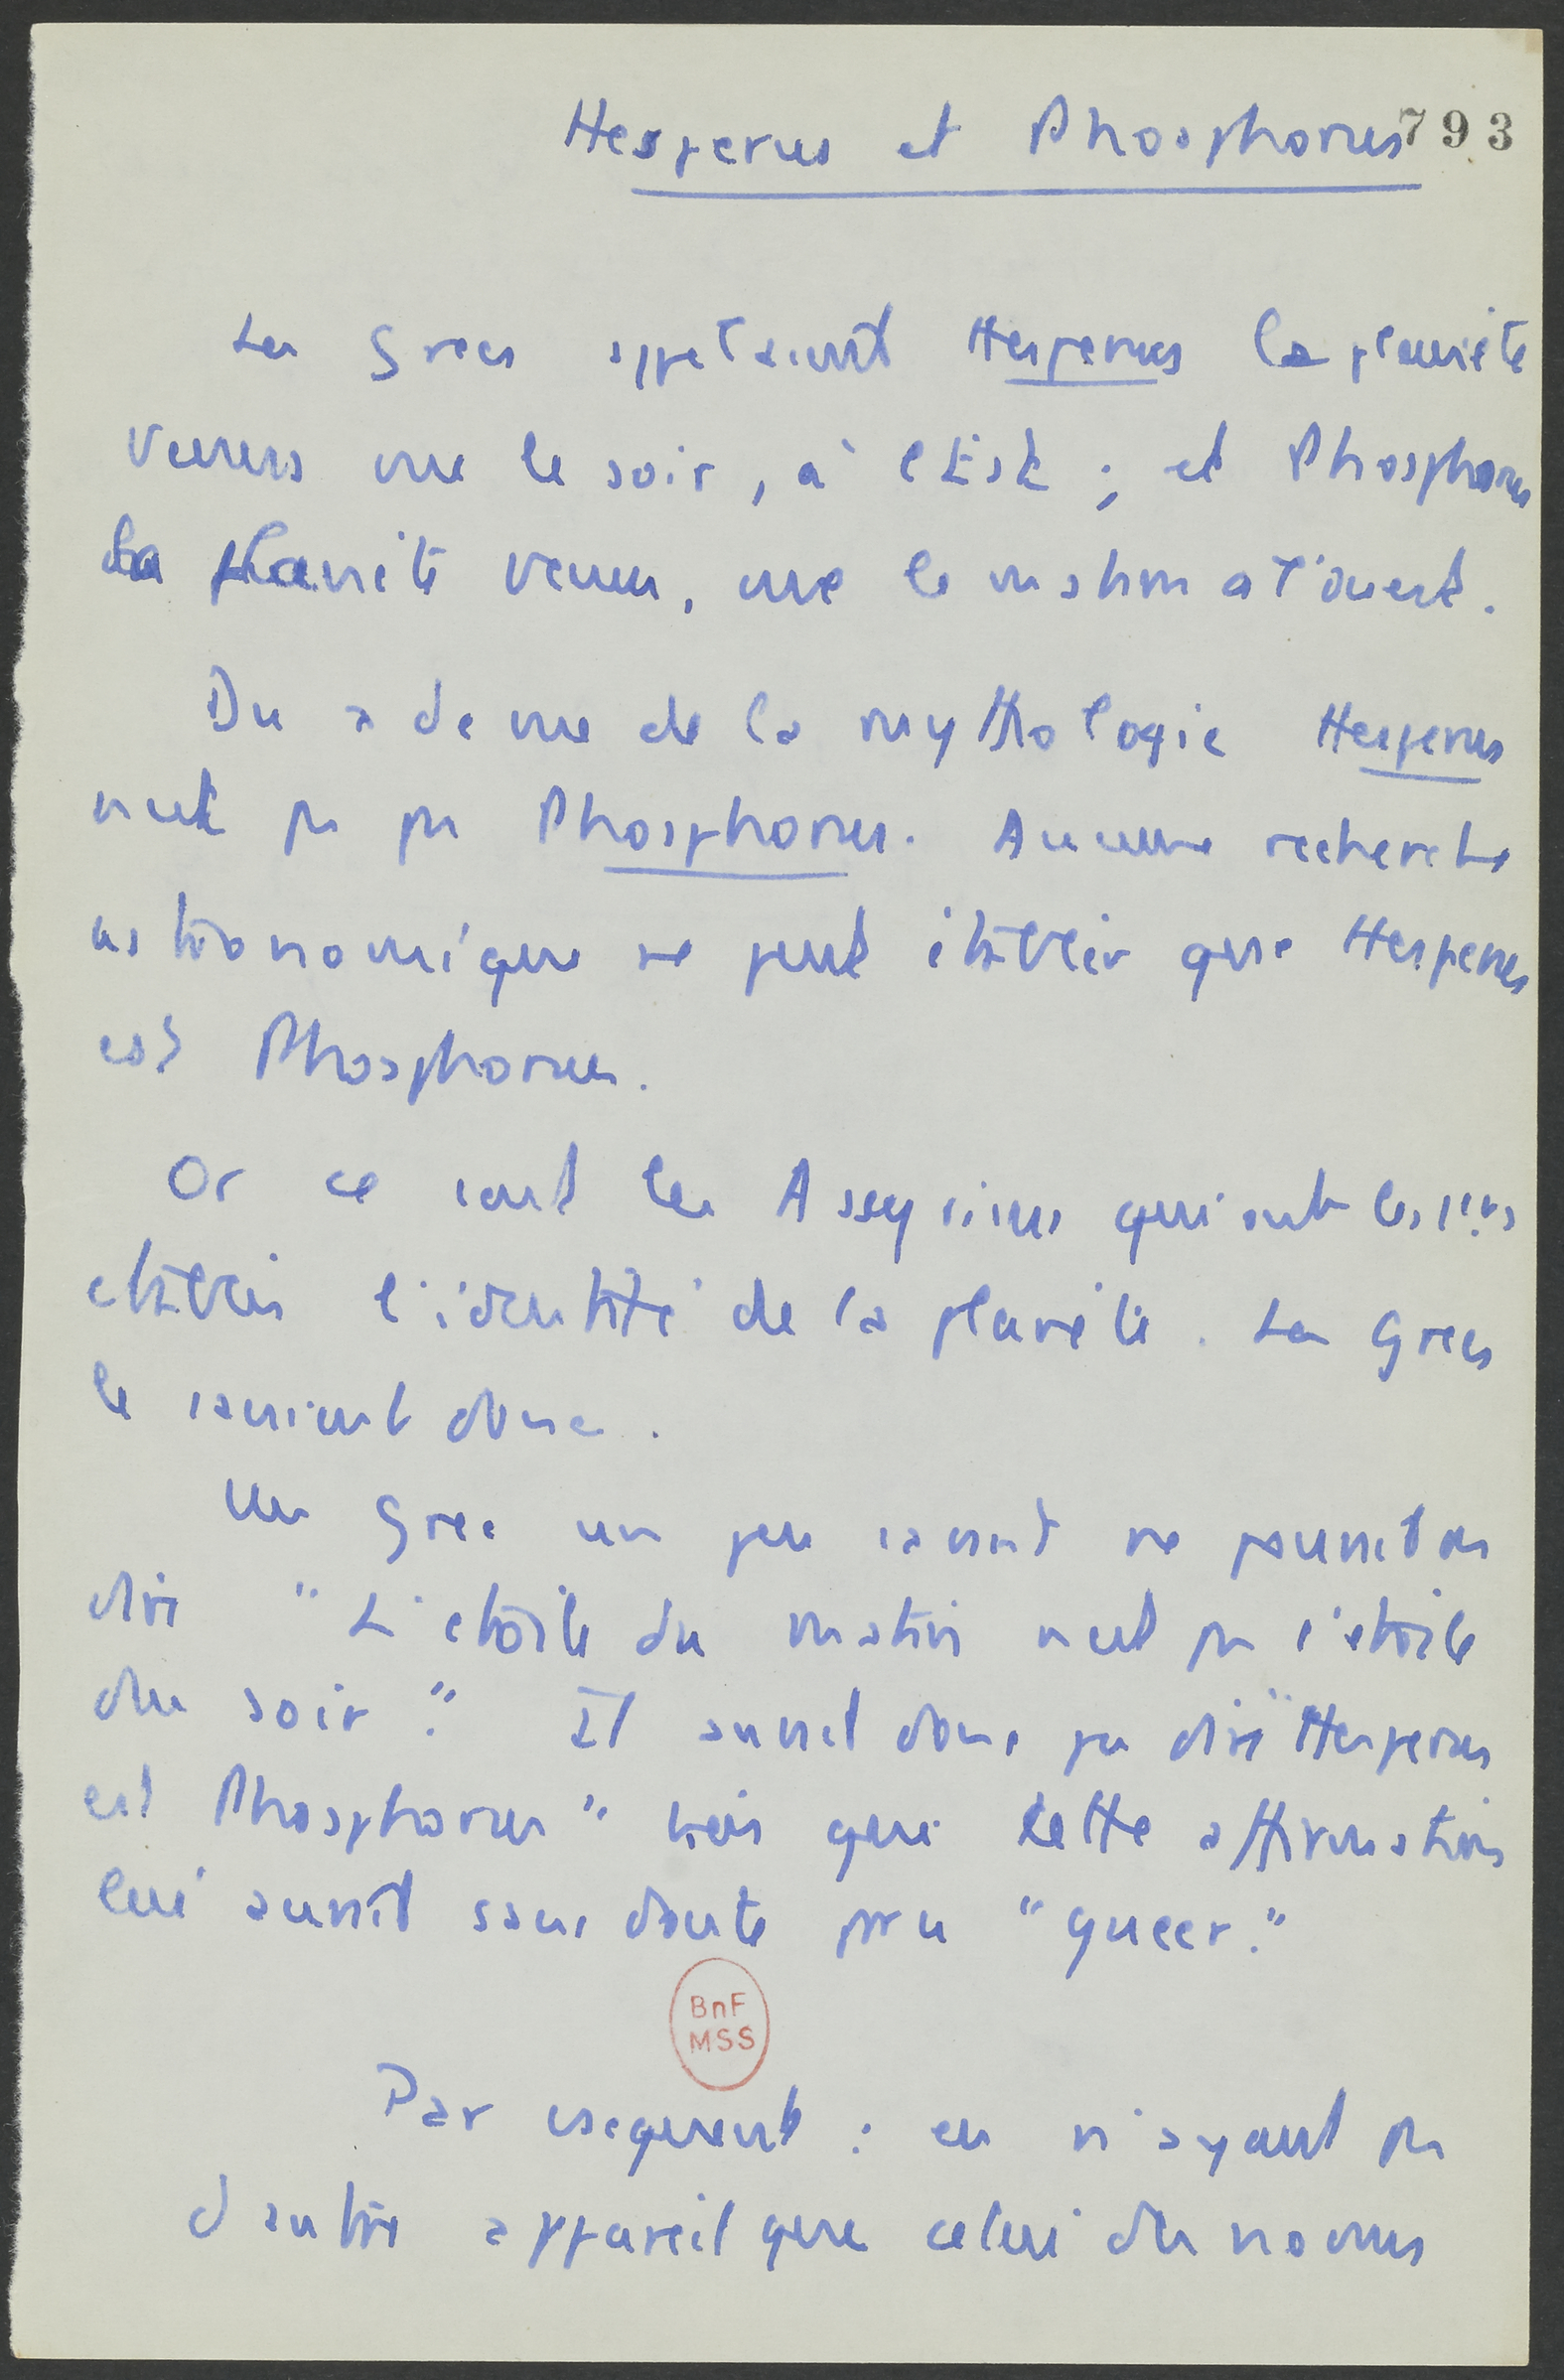 Hesperus et Phosphorus
793
Les Grecs appelaient Hesperus la planète
Venus vue le soir, à l'Est ; et Phosphorus
la planète Venus, vue le matin a l'ouest.
Du de vue de la mythologie Hesperus
n'est pas Phosphorus. Aucune recherche
astronomique ne peut établir que Hesperus
est Phosphorus.
Or ce sont les Assyriens qui ont les
établir l'identité de la planète. Les Grecs
le savaient donc.
Un Grec un peu savant ne pourrait pas
dire "L'étoile du matin n'est pas l'étoile
du soir". Il aurait donc pu dire "Hesperus
est Phosphorus" mais que cette affirmation
lui aurait sans doute paru "queer."
BnF
MSS
Par conséquent : en n'ayant pas
d'autre appareil que celui des noms